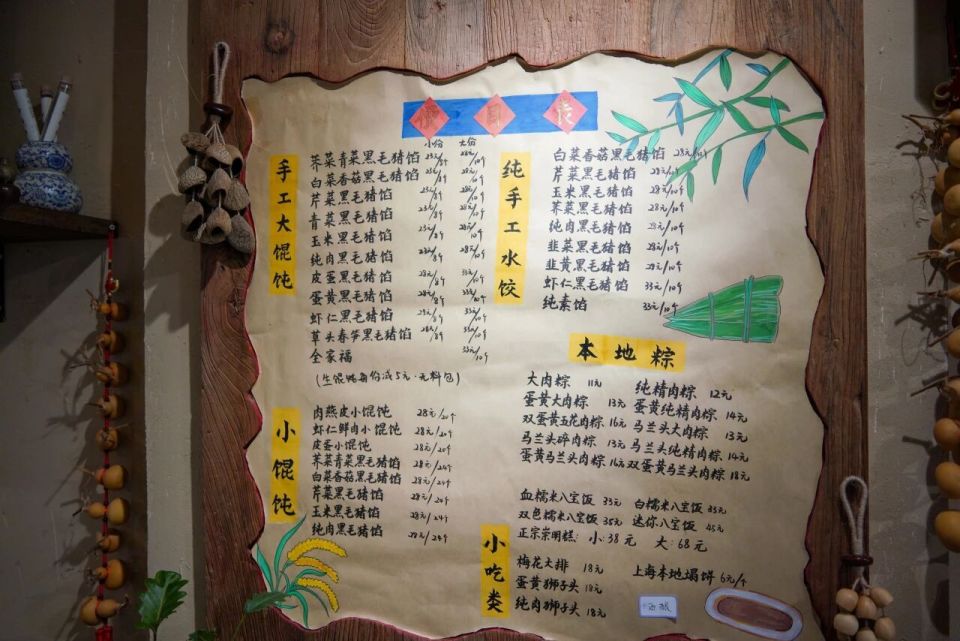 價目表
手工大馄饨
小份 大份
荠菜青菜黑毛猪馅 23元/8个 28元/10个
白菜香菇黑毛猪馅 23元/8个 28元/10个
芹菜黑毛猪馅 23元/8个 28元/10个
青菜黑毛猪馅 23元/8个 28元/10个
玉米黑毛猪馅 23元/8个 28元/10个
纯肉黑毛猪馅 28元/10个
皮蛋黑毛猪馅 28元/8个 33元/10个
蛋黄黑毛猪馅 28元/8个 33元/10个
虾仁黑毛猪馅 28元/8个 33元/10个
草头春笋黑毛猪馅 28元/8个 33元/10个
全家福 33元/10个
(生馄饨每份减5元·无料包)
小馄饨
肉燕皮小馄饨 28元/20个
虾仁鲜肉小馄饨 28元/20个
皮蛋小馄饨 28元/20个
荠菜青菜黑毛猪馅 28元/24个
白菜香菇黑毛猪馅 28元/24个
芹菜黑毛猪馅 28元/24个
玉米黑毛猪馅 28元/24个
纯肉黑毛猪馅 28元/24个
纯手工水饺
白菜香菇黑毛猪馅 28元/10个
芹菜黑毛猪馅 28元/10个
玉米黑毛猪馅 28元/10个
荠菜黑毛猪馅 28元/10个
纯肉黑毛猪馅 28元/10个
韭菜黑毛猪馅 28元/10个
韭黄黑毛猪馅 28元/10个
虾仁黑毛猪馅 33元/10个
纯素馅 33元/10个
本地粽
大肉粽 11元 纯精肉粽 12元
蛋黄大肉粽 13元 蛋黄纯精肉粽 14元
双蛋黄五花肉粽 16元 马兰头大肉粽 13元
马兰头碎肉粽 13元 马兰头纯精肉粽 14元
蛋黄马兰头肉粽 16元 双蛋黄马兰头肉粽 18元
血糯米八宝饭 33元 白糯米八宝饭 35元
双色糯米八宝饭 35元 迷你八宝饭 45元
正宗崇明糕: 小:38元 大:68元
小吃类
梅花大排 18元 上海本地塌饼 6元/个
蛋黄狮子头 18元
纯肉狮子头 18元